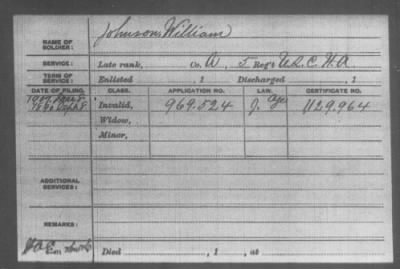 NAME OF SOLDIER: Johnson, William
SERVICE: Late rank, Co. A, 5 Reg't U.S.C.H.A.
TERM OF SERVICE: Enlisted , 1 Discharged , 1
DATE OF FILING. CLASS. APPLICATION NO. LAW. CERTIFICATE NO.
Invalid, 969.524 J. Age 1129.964
Widow,
Minor,
ADDITIONAL SERVICES:
REMARKS:
Died , 1 , at